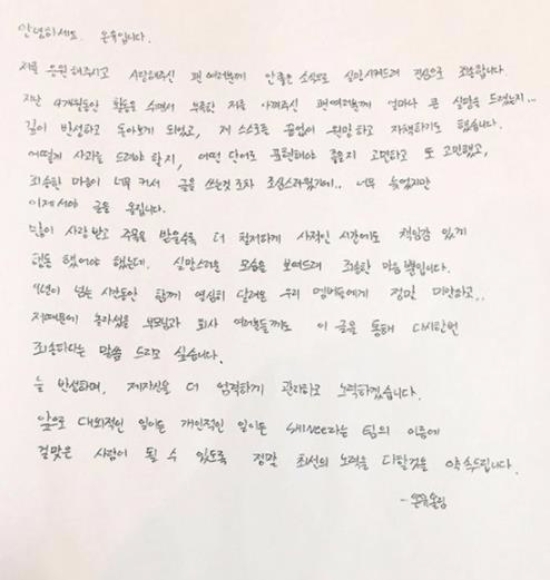 안녕하세요. 온유입니다.
저를 응원해주시고 사랑해주신 팬 여러분께 안좋은 소식으로 실망시켜드려 진심으로 죄송합니다.
지난 4개월동안 활동을 쉬면서 부족한 저를 아껴주신 팬여러분께 얼마나 큰 실망을 드렸는지...
깊이 반성하고 돌아보게 되었고, 저 스스로를 끝없이 원망하고 자책하기도 했습니다.
어떻게 사과를 드려야 할지, 어떤 단어로 표현해야 좋을지 고민하고 또 고민했고,
죄송한 마음이 너무 커서 글을 쓰는것 조차 조심스러웠기에.. 너무 늦었지만
이제서야 글을 올립니다.
많이 사랑 받고 주목을 받을수록 더 철저하게 사적인 시간에도 책임감 있게
행동 했어야 했는데. 실망스러운 모습을 보여드려 죄송한 마음 뿐입니다.
9년이 넘는 시간동안 함께 열심히 달려온 우리 멤버들에게 정말 미안하고..
저때문에 놀라셨을 부모님과 회사 여러분들께도 이 글을 통해 다시한번
죄송하다는 말씀 드리고 싶습니다.
늘 반성하며, 제자신을 더 엄격하게 관리하고 노력하겠습니다.
앞으로 대외적인 일이든 개인적인 일이든 SHINee라는 팀의 이름에
걸맞은 사람이 될 수 있도록 정말 최선의 노력을 다할것을 약속드립니다.
-온유올림